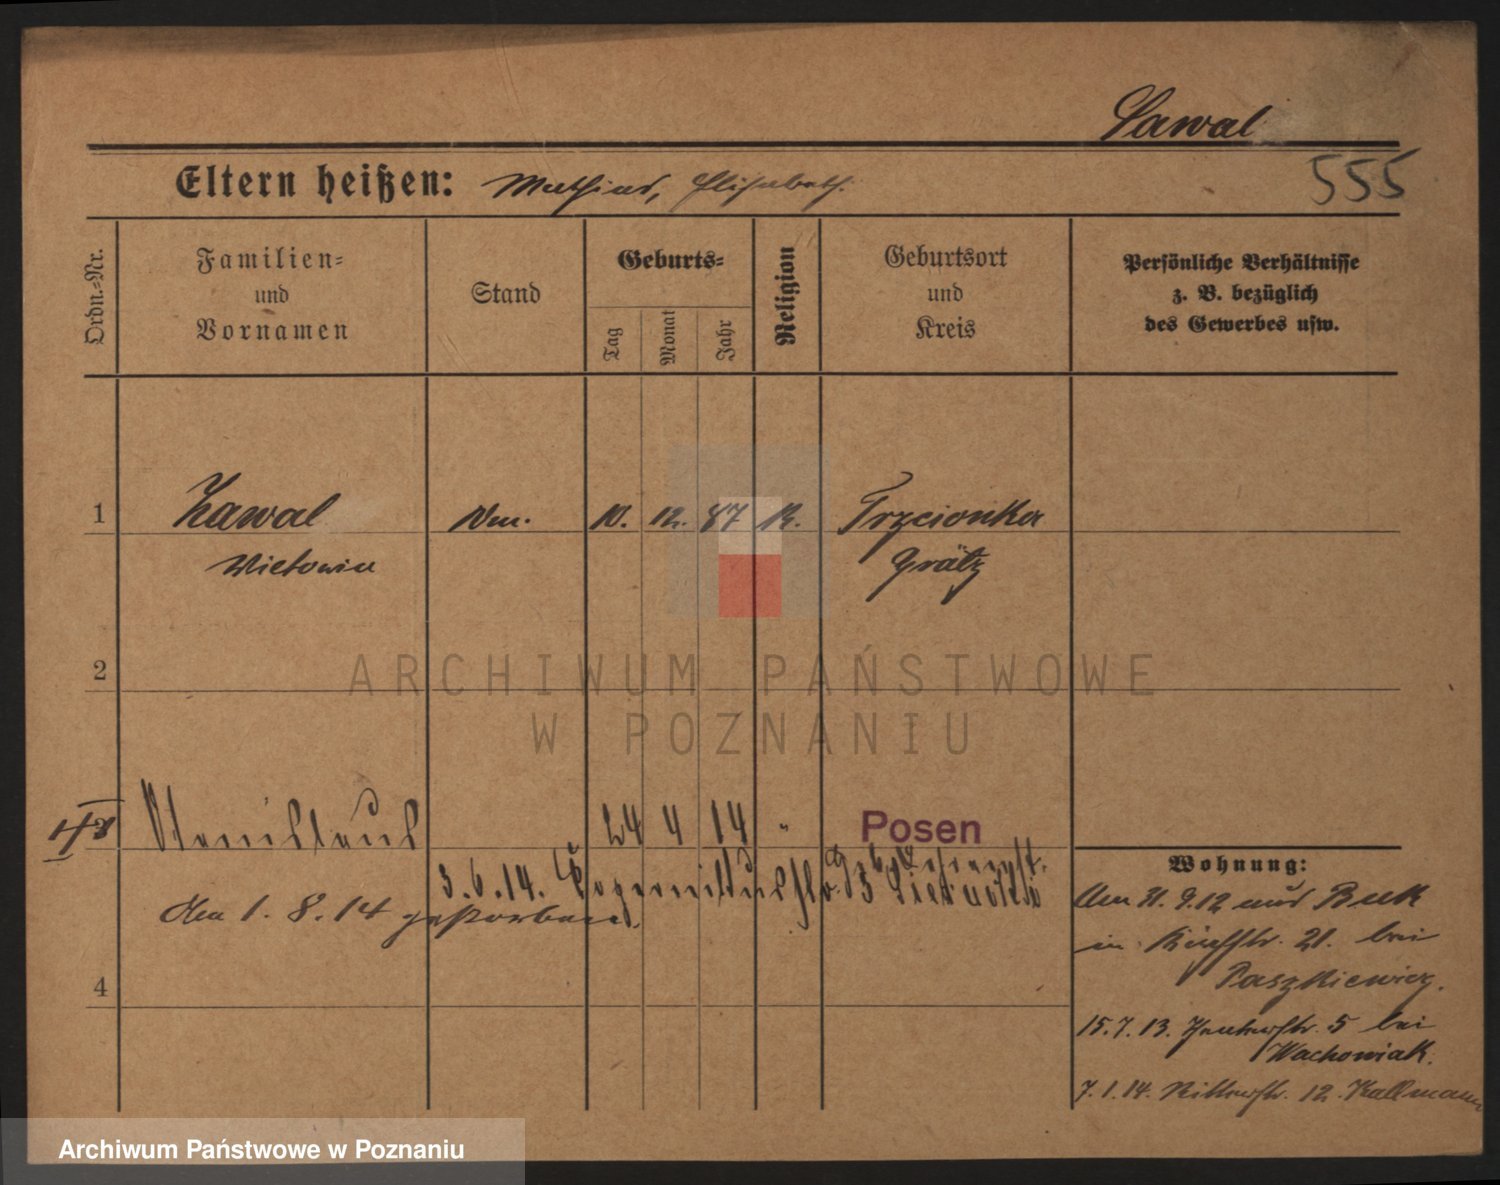 Lawal
555
Eltern heißen: Mathias, Elisabeth.
Ordn.-Nr.
Familien-
und
Vornamen
Stand
Geburts-
Tag
Monat
Jahr
Religion
Geburtsort
und
Kreis
Persönliche Verhältnisse
z. B. bezüglich
des Gewerbes usw.
1 Lawal 10. 12. 87 K. Trzcionka
Wictoria Grätz
2
3 24 4 14 " Posen
3.6.14.
am 1. 8. 14 gestorben.
4
Wohnung:
Am 21. 9. 12 aus Buk
in 21. bei
Paszkiewicz.
15. 7. 13. 5 bei
Wachowiak.
7. 1. 14. Ritterstr. 12. Kallmann
ARCHIWUM PAŃSTWOWE
W POZNANIU
Archiwum Państwowe w Poznaniu